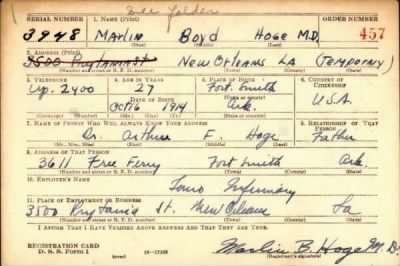 See folder
SERIAL NUMBER 1. NAME (Print) ORDER NUMBER
3948 Marlin Boyd Hoge M.D. 457
(First) (Middle) (Last)
2. ADDRESS (Print)
3500 Prytania St New Orleans La (Temporary)
(Number and street or R. F. D. number) (Town) (County) (State)
3. TELEPHONE 4. AGE IN YEARS 5. PLACE OF BIRTH 6. COUNTRY OF CITIZENSHIP
Up. 2400 27 Fort Smith
DATE OF BIRTH (Town or county)
Oct 16 1914 Ark. USA
(Exchange) (Number) (Mo.) (Day) (Yr.) (State or country)
7. NAME OF PERSON WHO WILL ALWAYS KNOW YOUR ADDRESS 8. RELATIONSHIP OF THAT PERSON
Dr. Arthur F. Hoge Father
(Mr., Mrs., Miss) (First) (Middle) (Last)
9. ADDRESS OF THAT PERSON
3611 Free Ferry Fort Smith Ark.
(Number and street or R. F. D. number) (Town) (County) (State)
10. EMPLOYER'S NAME
Touro Infirmary
11. PLACE OF EMPLOYMENT OR BUSINESS
3500 Prytania St. New Orleans La
(Number and street or R. F. D. number) (Town) (County) (State)
I AFFIRM THAT I HAVE VERIFIED ABOVE ANSWERS AND THAT THEY ARE TRUE.
REGISTRATION CARD
D. S. S. Form 1 (over) Marlin B. Hoge M.D.